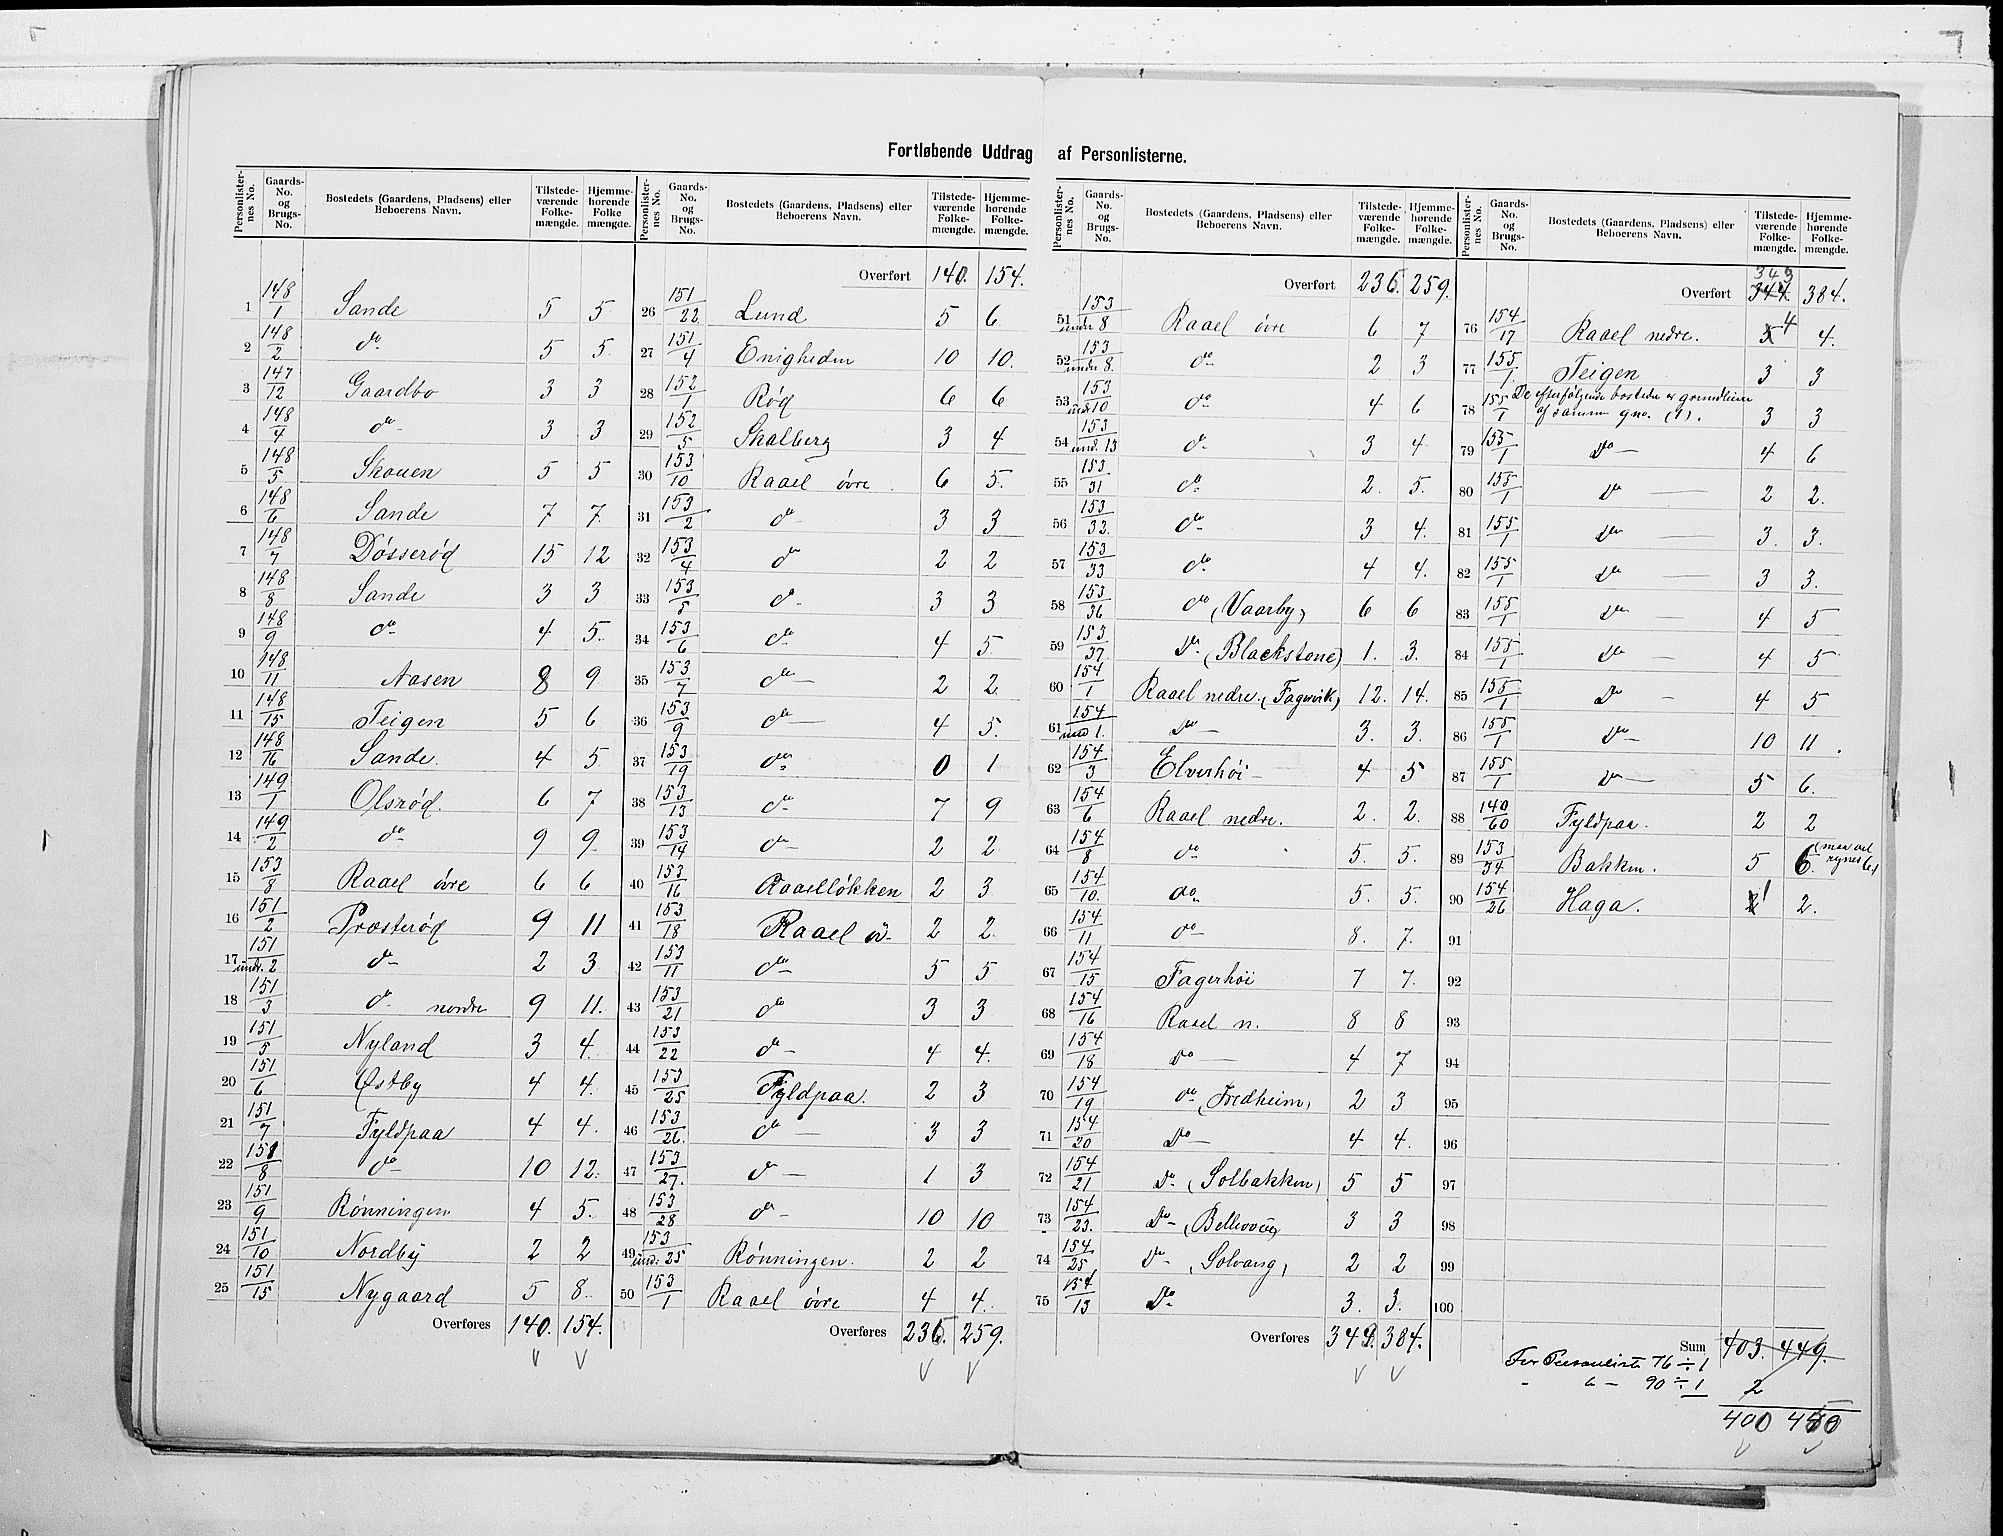 Fortløbende Uddrag af Personlisterne.
Personlisternes No. | Gaards-No. og Brugs-No. | Bostedets (Gaardens, Pladsens) eller Beboerens Navn. | Tilstedeværende Folkemængde. | Hjemmehørende Folkemængde.
1 148/1 Sande 5 5
2 148/2 do 5 5.
3 147/12 Gaardbo 3 3
4 148/4 do 3 3
5 148/5 Skouen 5 5
6 148/6 Sande 7 7.
7 148/7 Døsserød 15 12
8 148/8 Sande 3 3
9 148/9 do 4 5.
10 148/11 Aasen 8 9
11 148/15 Teigen 5 6
12 148/16 Sande. 4 5
13 149/1 Olsrød. 6 7
14 149/2 do 9 9.
15 153/8 Raael øvre 6 6
16 151/2 Præsterød 9 11
17 151/undr. 2 do 2 3.
18 151/3 do nordre 9 11.
19 151/5 Nyland 3 4.
20 151/6 Østby 4 4.
21 151/7 Fyldpaa 4 4.
22 151/8 do 10 12.
23 151/9 Rønningen 4 5.
24 151/10 Nordby 2 2
25 151/15 Nygaard 5 8.
Overføres 140. 154.
Personlisternes No. | Gaards-No. og Brugs-No. | Bostedets (Gaardens, Pladsens) eller Beboerens Navn. | Tilstedeværende Folkemængde. | Hjemmehørende Folkemængde.
Overført 140. 154.
26 151/22 Lund 5 6
27 151/4 Enigheden 10 10.
28 152/1 Rød 6 6
29 152/5 Skalberg 3 4
30 153/10 Raael øvre. 6 5.
31 153/2 do 3 3
32 153/4 do 2 2
33 153/5 do 3 3
34 153/6 do 4 5
35 153/7 do 2 2.
36 153/9 do 4 5.
37 153/19 do 0 1
38 153/13 do 7 9
39 153/14 do 2 2
40 153/16 Raaelløkken 2 3
41 153/18 Raael ø. 2 2.
42 153/11 do 5 5
43 153/21 do 3 3
44 153/22 do 4 4.
45 153/25 Fyldpaa. 2 3
46 153/26. do 3 3
47 153/27. do 1 3
48 153/28 do 10 10
49 153/und. 25 Rønningen. 2 2
50 153/1 Raael øvre 4 4.
Overføres 236. 259.
Personlisternes No. | Gaards-No. og Brugs-No. | Bostedets (Gaardens, Pladsens) eller Beboerens Navn. | Tilstedeværende Folkemængde. | Hjemmehørende Folkemængde.
Overført 236. 259.
51 153/under 8 Raael øvre 6 7
52 153/under 8. do 2 3
53 153/und 10 do 4 6
54 153/und. 13 do 3 4
55 153/31 do 2. 5.
56 153/32. do 3 4.
57 153/33 do 4 4.
58 153/36 do (Vaarby) 6 6
59 153/37 Do (Blackstone) 1. 3.
60 154/1 Raael nedre. (Fagervik) 12. 14.
61 154/und 1. Do 3. 3.
62 154/3 Elverhöi 4 5
63 154/6 Raael nedre. 2. 2.
64 154/8 do 5. 5.
65 154/10. do 5. 5.
66 154/11 do 8. 7.
67 154/15 Fagerhöi 7 7.
68 154/16 Raael n. 8 8
69 154/18 Do 4 7
70 154/19 do (Fredheim) 2 3
71 154/20 Do 4 4.
72 154/21 Do (Solbakken) 5 5
73 154/23. Do (Bellevue) 3 3
74 154/25 Do (Solvang) 2 2
75 154/13 Do 3. 3.
Overføres 349. 384.
Personlisternes No. | Gaards-No. og Brugs-No. | Bostedets (Gaardens, Pladsens) eller Beboerens Navn. | Tilstedeværende Folkemængde. | Hjemmehørende Folkemængde.
343
Overført 344. 384.
76 154/17 Raael nedre. 5 4 4.
77 155/1. Teigen 3 3
78 155/1 De efterfølgende bosteder er grundleien af samme gno. (1). 3 3
79 155/1 Do 4 6
80 155/1 Do 2 2.
81 155/1 Do 3. 3.
82 155/1 Do 3 3.
83 155/1 Do 4 5
84 155/1 Do 4 5
85 155/1 Do 4 5
86 155/1 Do 10 11.
87 155/1 Do 5 6.
88 140/60 Fyldpaa. 2 2
89 153/34 Bakken. 5 6.
90 154/26 Haga. 2 1 2.
91
92
93
94
95
96
97
98
99
100
Sum 403. 449.
For Personliste 76 ÷ 1
" " 90 ÷ 1 2
400 450